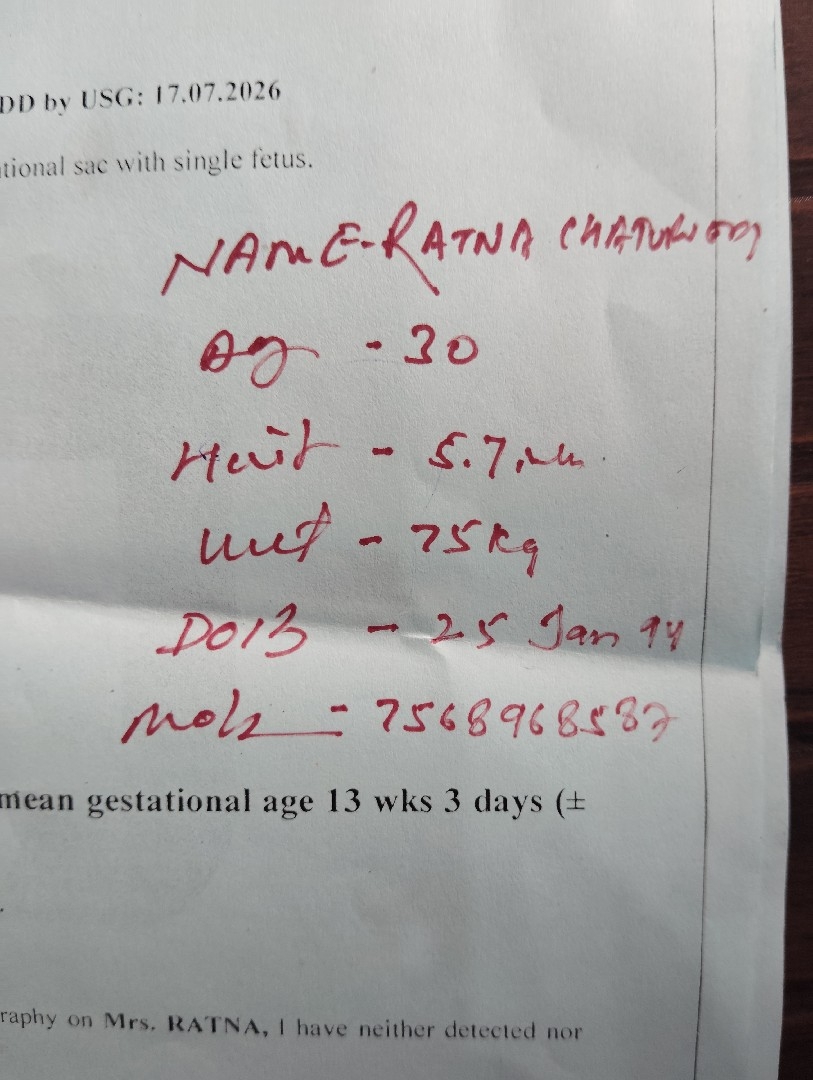 DD by USG: 17.07.2026
tional sac with single fetus.
NAME-RATNA CHATURVEDI
Age - 30
Height - 5.7 inch
Weight - 75 kg
DOB - 25 Jan 94
Mob - 7568968587
mean gestational age 13 wks 3 days (±
.
raphy on Mrs. RATNA, I have neither detected nor